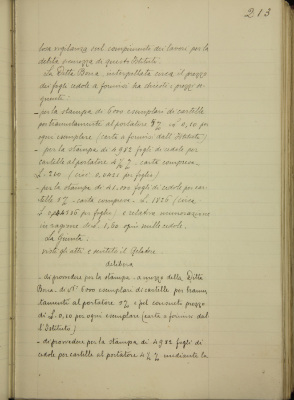 213
losa vigilanza sul compimento dei lavori per la
della stampa di questo Istituto.
La Ditta Bona, interpellata circa il prezzo
dei fogli cedole a fornirsi ha chiesto i prezzi se-
guenti:
- per la stampa di 6000 esemplari di cartelle
per tramutamenti al portatore 5% L. 0,10 per
ogni esemplare (carta a fornirsi dall'Istituto)
- per la stampa di 4982 fogli di cedole per
cartelle al portatore 4½% - carta compresa -
L. 210 (circa 0,0421 per foglio)
- per la stampa di 41.000 fogli di cedole per car-
telle 5% - carta compresa L. 1826 (circa
L. 0,44536 per foglio) e relativa numerazione
in ragione di L. 1,60 ogni mille cedole.
La Giunta
visti gli atti e sentito il Relatore
delibera
- di provvedere per la stampa a mezzo della Ditta
Bona di N° 6000 esemplari di cartelle per tramu-
tamenti al portatore 5% e pel convenuto prezzo
di L. 0,10 per ogni esemplare (carta a fornirsi dal-
l'Istituto)
- di provvedere per la stampa di 4982 fogli di
cedole per cartelle al portatore 4½% mediante la